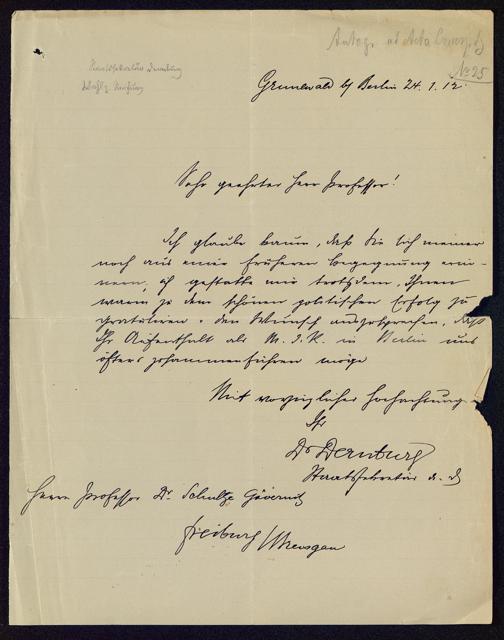 Autogr. ad Acta
No 25
Staatssekretär Dernburg
Grunewald b/ Berlin 24.1.12.
Sehr geehrter Herr Professor!
Ich glaube kaum, daß Sie sich meiner
noch aus einer früheren Begegnung erin-
nern, ich gestatte mir trotzdem, Ihnen
warm zu dem schönen politischen Erfolg zu
gratulieren & den Wunsch auszusprechen, daß
Ihr Aufenthalt als M.d.R. in Berlin uns
öfters zusammenführen möge
Mit vorzüglicher Hochachtung
Ihr
Dr Dernburg
Staatssekretär a. D.
Herrn Professor Dr. Schultze Gävernitz
Freiburg i/Breisgau